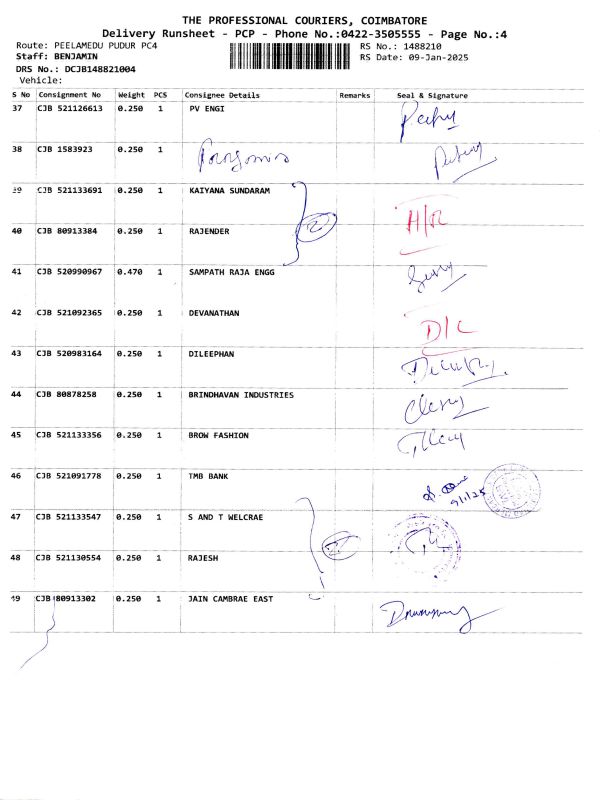 THE PROFESSIONAL COURIERS, COIMBATORE
Delivery Runsheet - PCP - Phone No.:0422-3505555 - Page No.:4
Route: PEELAMEDU PUDUR PC4 RS No.: 1488210
Staff: BENJAMIN RS Date: 09-Jan-2025
DRS No.: DCJB148821004
Vehicle:
S No Consignment No Weight PCS Consignee Details Remarks Seal & Signature
37 CJB 521126613 0.250 1 PV ENGI
38 CJB 1583923 0.250 1
39 CJB 521133691 0.250 1 KAIYANA SUNDARAM H/R
40 CJB 80913384 0.250 1 RAJENDER
41 CJB 520990967 0.470 1 SAMPATH RAJA ENGG
42 CJB 521092365 0.250 1 DEVANATHAN D/L
43 CJB 520983164 0.250 1 DILEEPHAN
44 CJB 80878258 0.250 1 BRINDHAVAN INDUSTRIES
45 CJB 521133356 0.250 1 BROW FASHION
46 CJB 521091778 0.250 1 TMB BANK 9/1/25
47 CJB 521133547 0.250 1 S AND T WELCRAE
48 CJB 521130554 0.250 1 RAJESH
49 CJB 80913302 0.250 1 JAIN CAMBRAE EAST